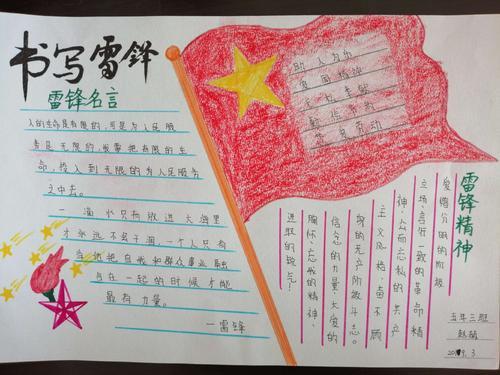 书写雷锋
雷锋名言
人的生命是有限的,可是为人民服
务是无限的,我要把有限的生
命,投入到无限的为人民服务
之中去。
一滴水只有放进大海里
才永远不会干涸,一个人只有
当他把自我和群众事业融
合在一起的时候才能
最有力量。
—雷锋
助人为乐
爱国精神
无私奉献
勤俭节约
热爱劳动
雷锋精神
爱憎分明的阶级
立场、言行一致的革命精
神、公而忘私的共产
主义风格、奋不顾
身的无产阶级斗志。
信念的力量、大爱的
胸怀、忘我的精神、
进取的锐气…
五年三班
2019.3